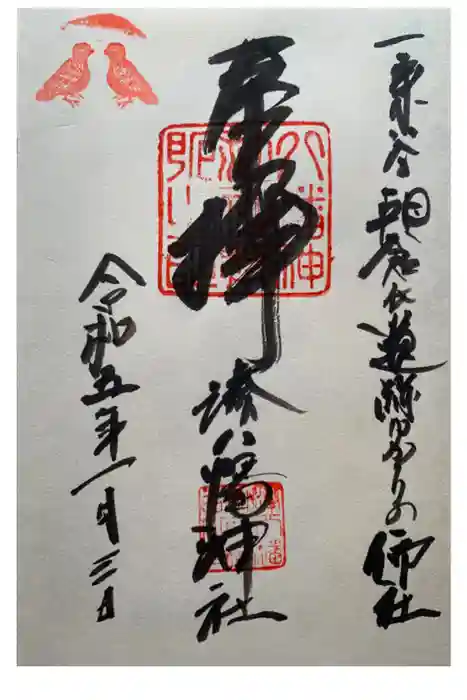 一乗谷朝倉氏遺跡ゆかりの御社
奉拝
湊八幡神社
令和五年一月三日